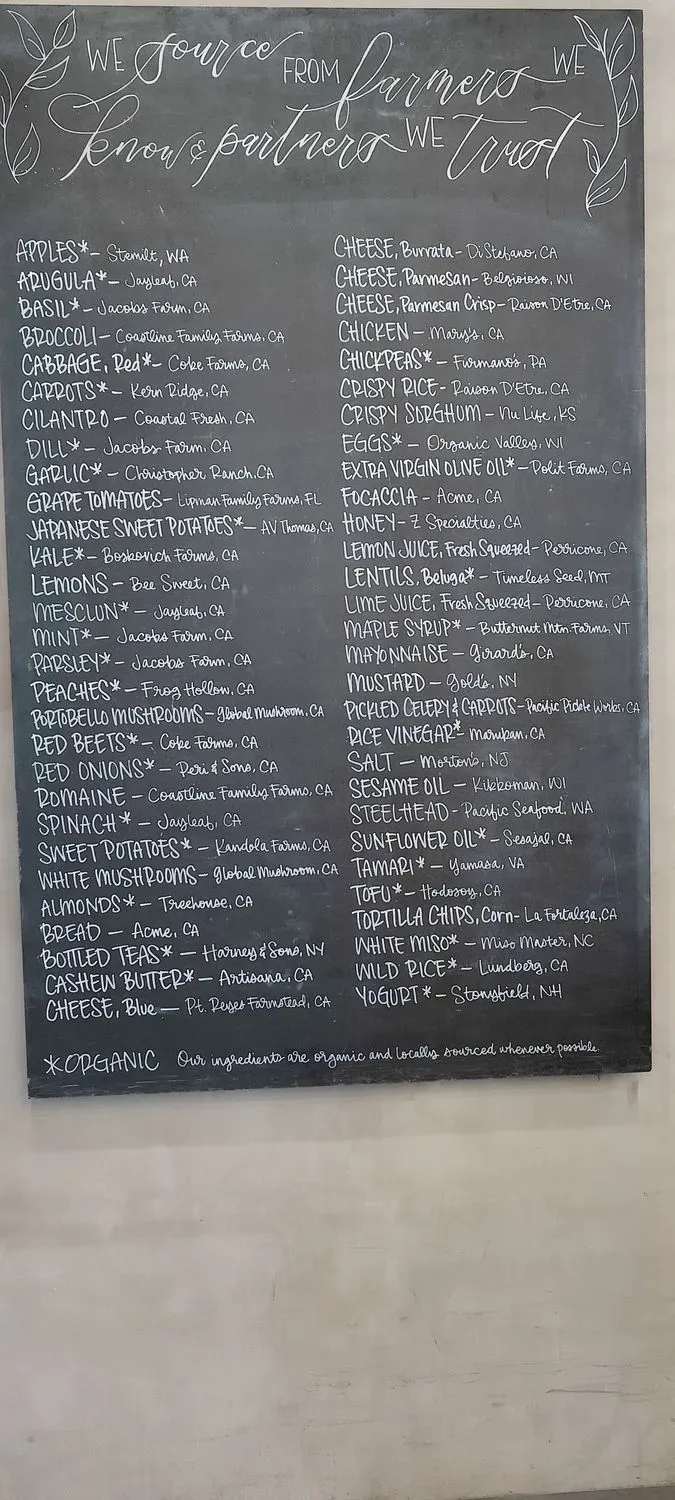 WE source FROM farmers WE
know & partners WE trust
APPLES* - Stemilt, WA
ARUGULA* - Jayleaf, CA
BASIL* - Jacobs Farm, CA
BROCCOLI - Coastline Family Farms, CA
CABBAGE, Red* - Coke Farms, CA
CARROTS* - Kern Ridge, CA
CILANTRO - Coastal Fresh, CA
DILL* - Jacobs Farm, CA
GARLIC* - Christopher Ranch, CA
GRAPE TOMATOES - Lipman Family Farms, FL
JAPANESE SWEET POTATOES* - AV Thomas, CA
KALE* - Boskovich Farms, CA
LEMONS - Bee Sweet, CA
MESCLUN* - Jayleaf, CA
MINT* - Jacobs Farm, CA
PARSLEY* - Jacobs Farm, CA
PEACHES* - Frog Hollow, CA
PORTOBELLO MUSHROOMS - Global Mushroom, CA
RED BEETS* - Coke Farms, CA
RED ONIONS* - Peri & Sons, CA
ROMAINE - Coastline Family Farms, CA
SPINACH* - Jayleaf, CA
SWEET POTATOES* - Kandola Farms, CA
WHITE MUSHROOMS - Global Mushroom, CA
ALMONDS* - Treehouse, CA
BREAD - Acme, CA
BOTTLED TEAS* - Harney & Sons, NY
CASHEW BUTTER* - Artisana, CA
CHEESE, Blue - Pt. Reyes Farmstead, CA
CHEESE, Burrata - Di Stefano, CA
CHEESE, Parmesan - Belgioioso, WI
CHEESE, Parmesan Crisp - Raison D'Etre, CA
CHICKEN - Mary's, CA
CHICKPEAS* - Furmano's, PA
CRISPY RICE - Raison D'Etre, CA
CRISPY SORGHUM - Nu Life, KS
EGGS* - Organic Valley, WI
EXTRA VIRGIN OLIVE OIL* - Polit Farms, CA
FOCACCIA - Acme, CA
HONEY - Z Specialties, CA
LEMON JUICE, Fresh Squeezed - Perricone, CA
LENTILS, Beluga* - Timeless Seed, MT
LIME JUICE, Fresh Squeezed - Perricone, CA
MAPLE SYRUP* - Butternut Mtn. Farms, VT
MAYONNAISE - Girard's, CA
MUSTARD - Gold's, NY
PICKLED CELERY & CARROTS - Pacific Pickle Works, CA
RICE VINEGAR* - Marukan, CA
SALT - Morton's, NJ
SESAME OIL - Kikkoman, WI
STEELHEAD - Pacific Seafood, WA
SUNFLOWER OIL* - Sesajal, CA
TAMARI* - Yamasa, VA
TOFU* - Hodosoy, CA
TORTILLA CHIPS, Corn - La Fortaleza, CA
WHITE MISO* - Miso Master, NC
WILD RICE* - Lundberg, CA
YOGURT* - Stonyfield, NH
*ORGANIC Our ingredients are organic and locally sourced whenever possible.